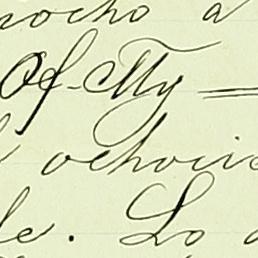 ocho a
Of. My =
ochocie
le. Lo a